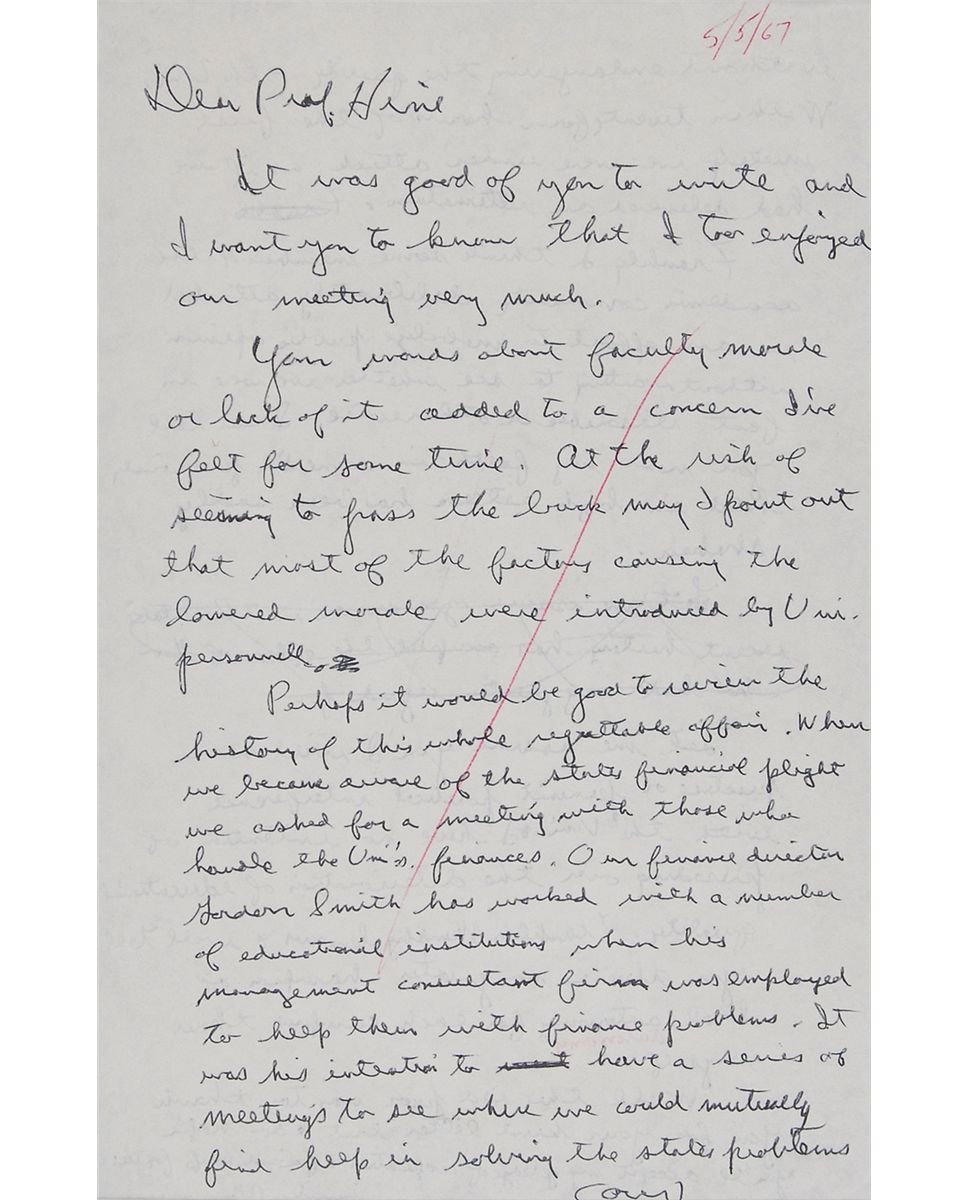 5/5/67
Dear Prof. Hine
It was good of you to write and
I want you to know that I too enjoyed
our meeting very much.
Your words about faculty morale
or lack of it added to a concern I've
felt for some time. At the risk of
seeming to pass the buck may I point out
that most of the factors causing the
lowered morale were introduced by Uni.
personnell.
Perhaps it would be good to review the
history of this whole regrettable affair. When
we became aware of the states financial plight
we asked for a meeting with those who
handle the Uni's. finances. Our finance director
Gordon Smith has worked with a number
of educational institutions when his
management consultant firm was employed
to help them with finance problems. It
was his intention to have a series of
meetings to see where we could mutually
find help in solving the states problems
(over)